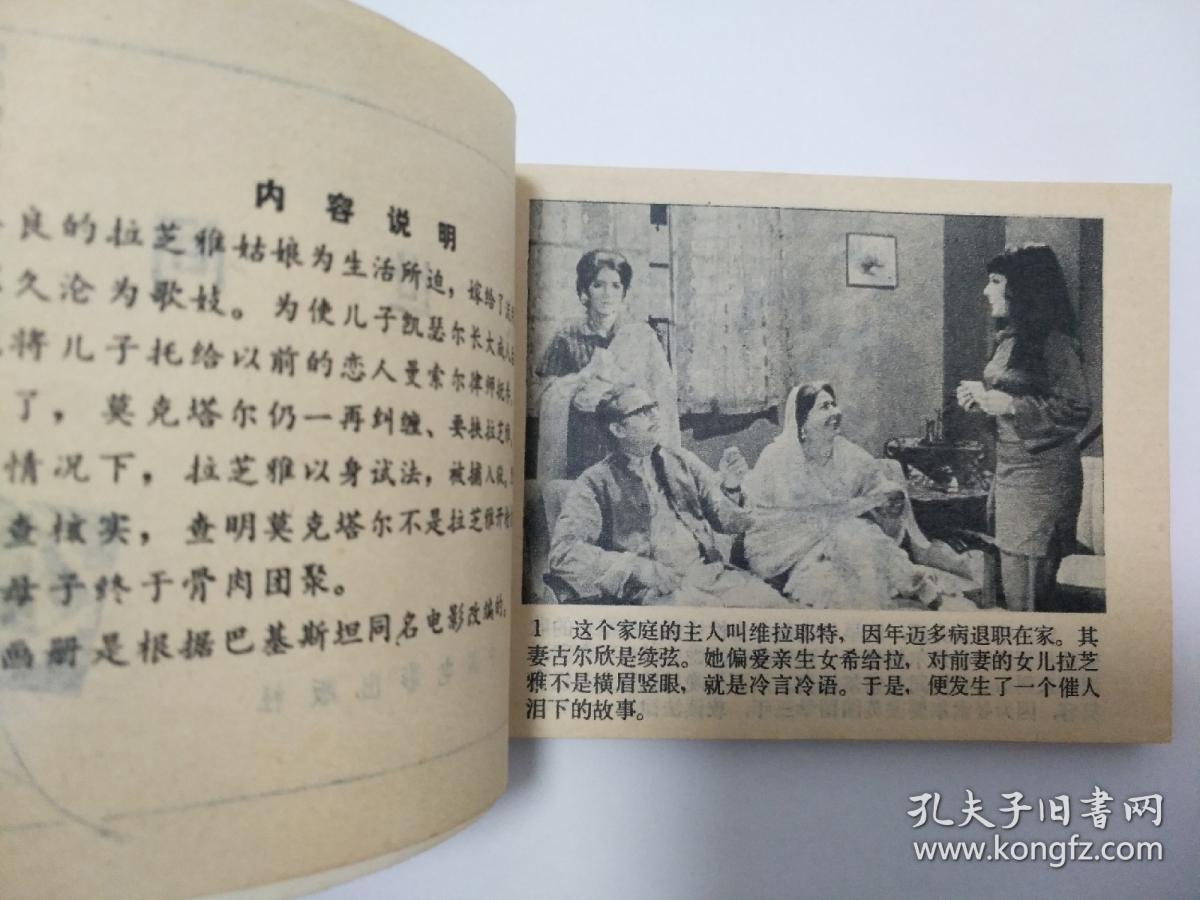 内容说明
良的拉芝雅姑娘为生活所迫，嫁给了
久沦为歌妓。为使儿子凯瑟尔长大成人
将儿子托给以前的恋人曼索尔律师抚养
了，莫克塔尔仍一再纠缠、要挟拉芝雅
情况下，拉芝雅以身试法，被捕入狱。
查核实，查明莫克塔尔不是拉芝雅开枪
母子终于骨肉团聚。
画册是根据巴基斯坦同名电影改编的。
电影出版社
1 这个家庭的主人叫维拉耶特，因年迈多病退职在家。其
妻古尔欣是续弦。她偏爱亲生女希给拉，对前妻的女儿拉芝
雅不是横眉竖眼，就是冷言冷语。于是，便发生了一个催人
泪下的故事。
孔夫子旧书网
www.kongfz.com